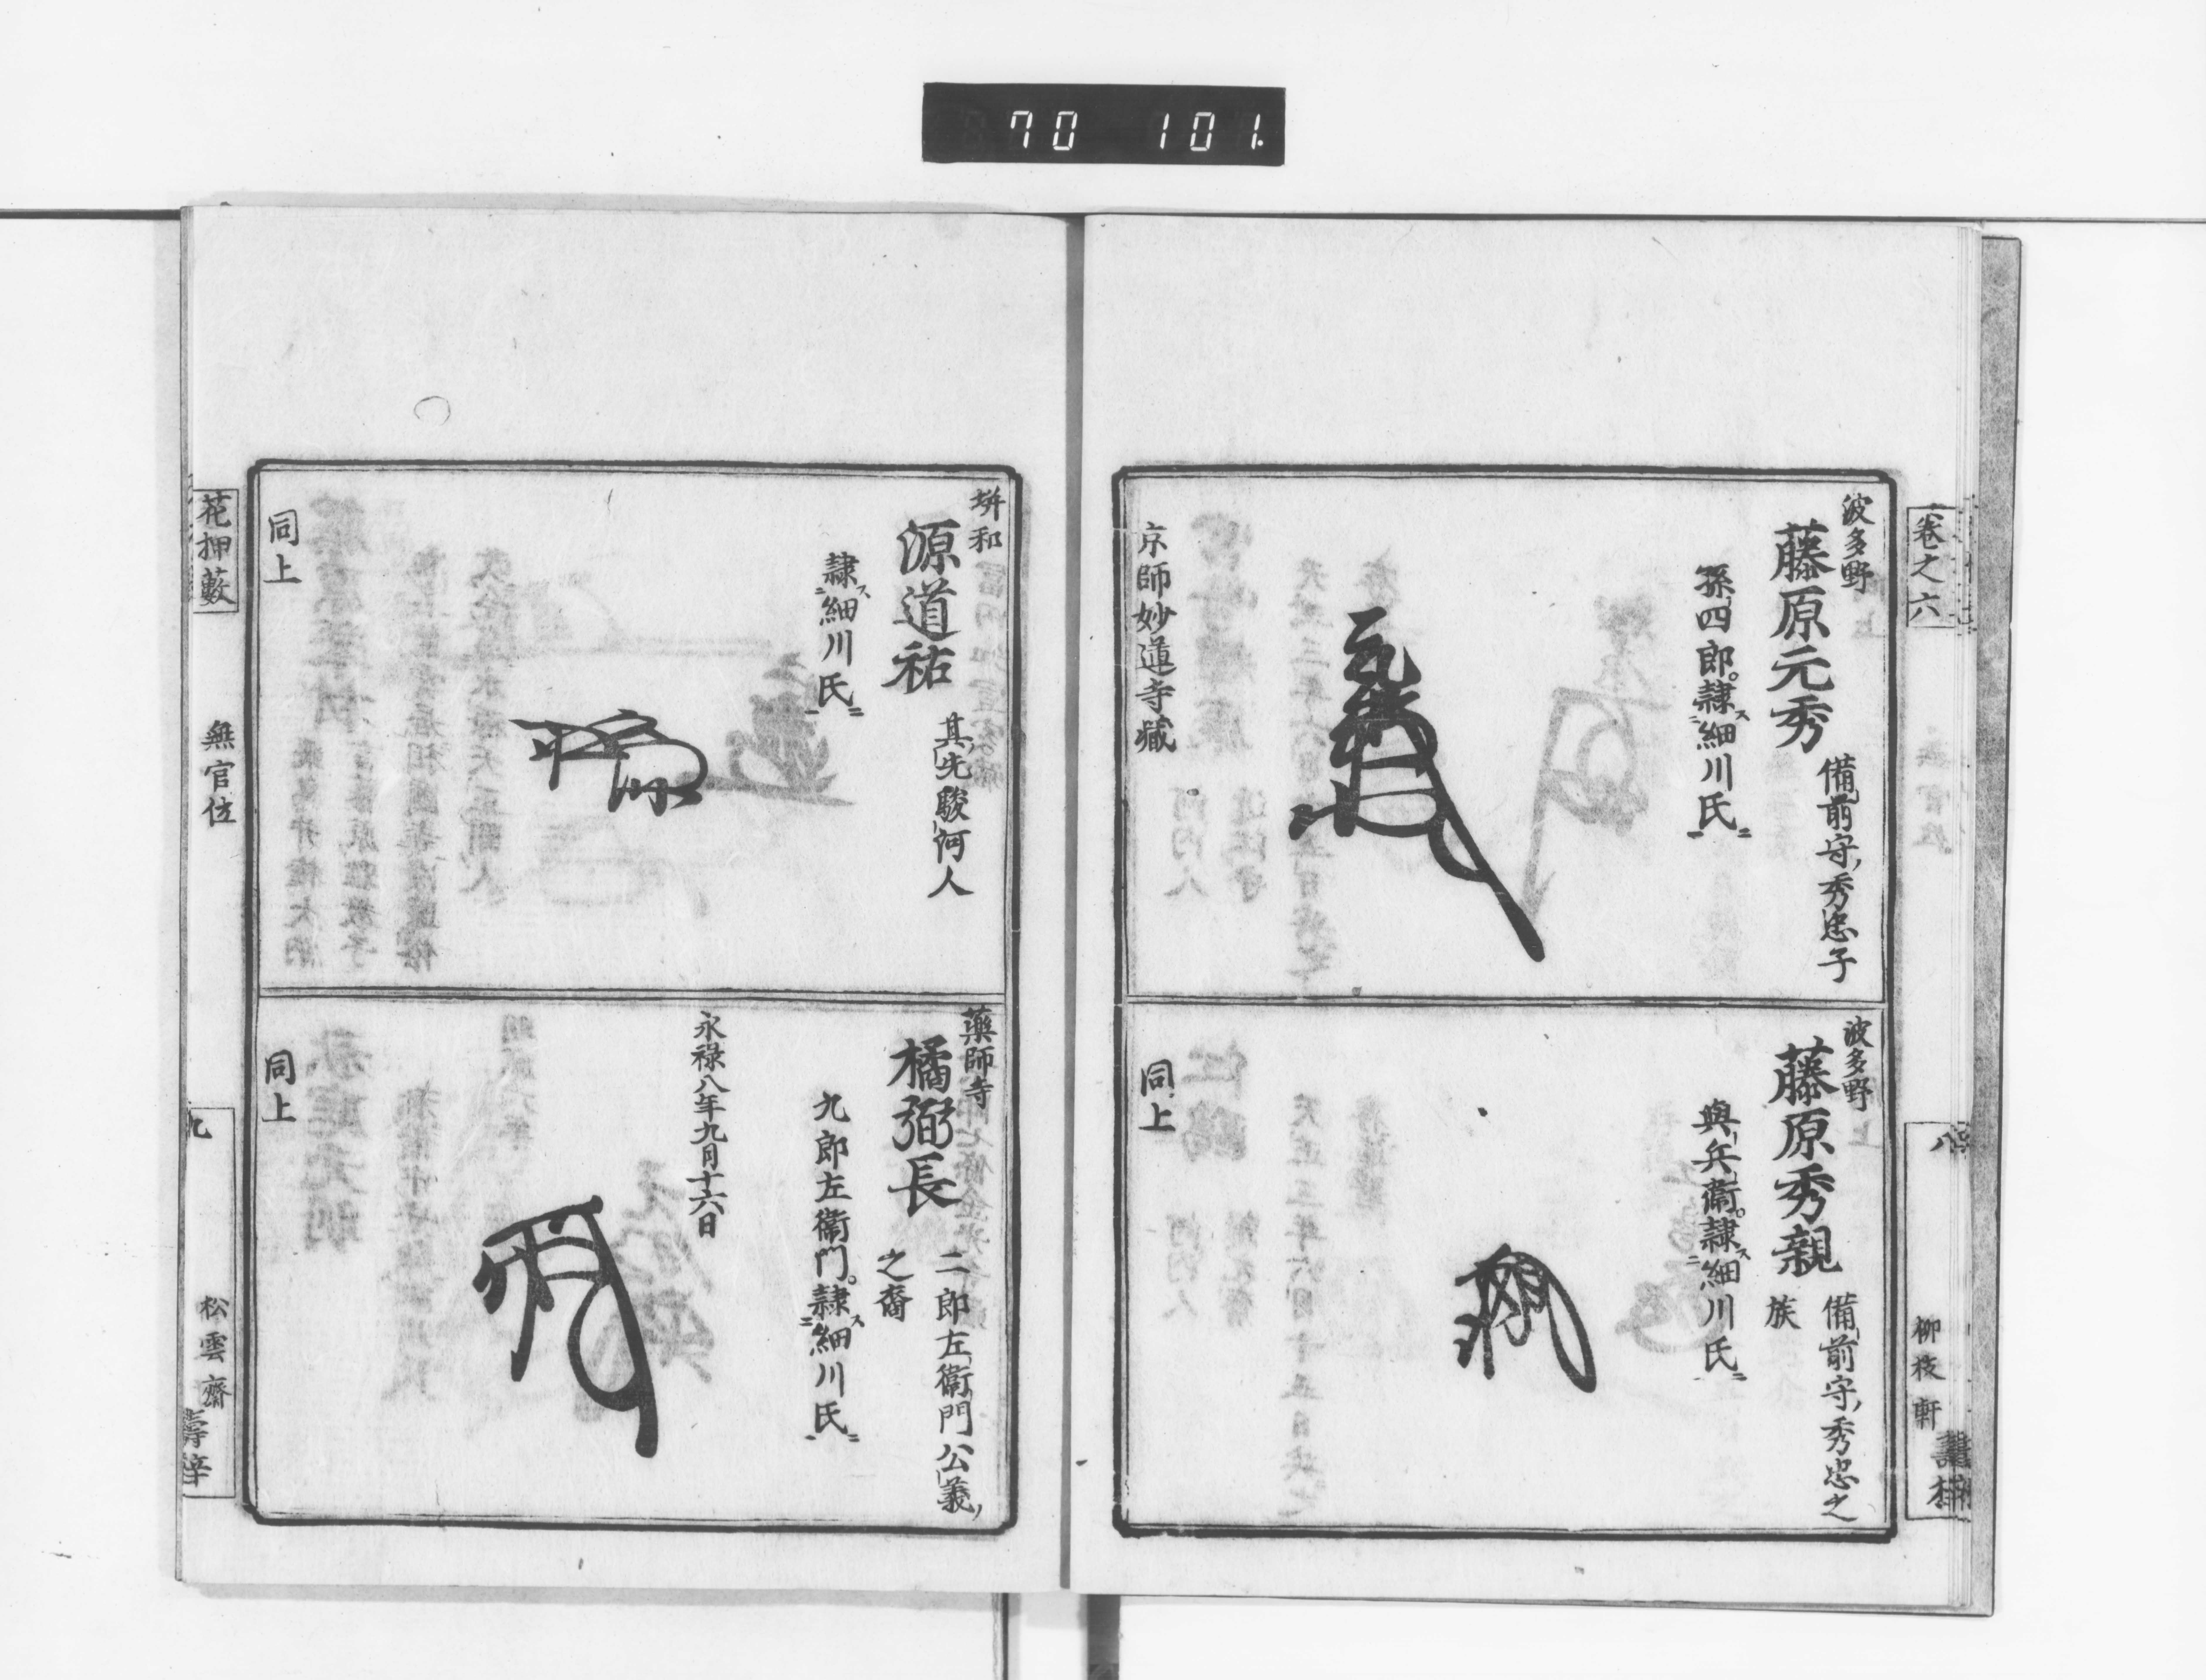 70 101.
卷之六
八
柳枝軒
波多野
藤原元秀
備前守秀忠子
孫四郎。隷ス細川氏ニ
京師妙蓮寺藏
波多野
藤原秀親
備前守秀忠之
族
與兵衞。隷ス細川氏ニ
同上
垪和
源道祐
其先駿河人
隷ス細川氏ニ
同上
藥師寺
橘弼長
二郎左衞門公義
之裔
九郎左衞門。隷ス細川氏ニ
永祿八年九月十六日
同上
花押藪
無官位
九
松雲齋
壽梓